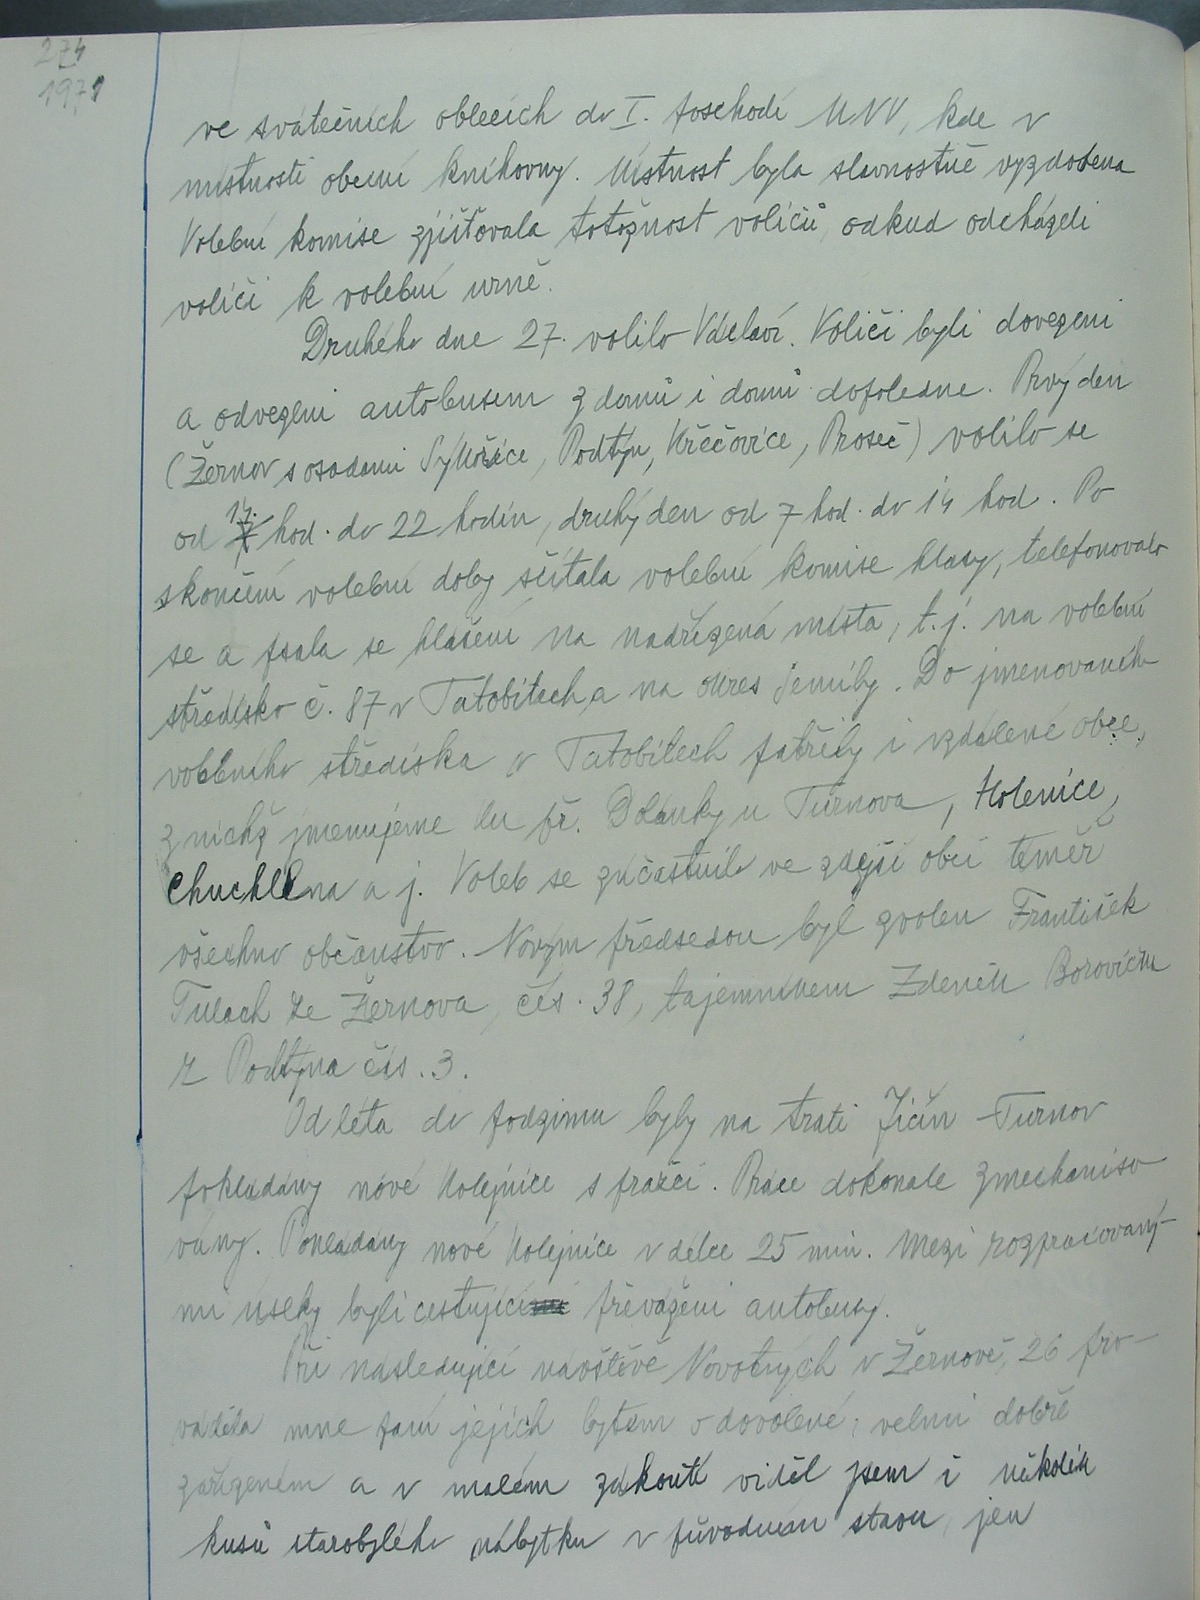 274
1971
ve svátečních oblecích do I. poschodí MNV, kde v
místnosti obecní knihovny. Místnost byla slavnostně vyzdobena
Volební komise zjišťovala totožnost voličů, odkud odcházeli
voliči k volební urně.
Druhého dne 27. volilo Václaví. Voliči byli dovezeni
a odvezeni autobusem z domů i domů dopoledne. Prvý den
(Žernov s osadami Sýkořice, Podtýn, Křečovice, Proseč) volilo se
od 14. hod. do 22 hodin, druhý den od 7 hod. do 14 hod. Po
skončení volební doby sčítala volební komise hlasy, telefonovalo
se a psala se hlášení na nadřízená místa, t.j. na volební
středisko č. 87 v Tatobitech a na okres Semily. Do jmenovaného
volebního střediska v Tatobitech patřily i vzdálené obce,
z nichž jmenujeme tu př. Dolánky u Turnova, Holenice,
Chuchelna a j. Voleb se zúčastnilo ve zdejší obci téměř
všechno občanstvo. Novým předsedou byl zvolen František
Tulach ze Žernova, čís. 38, tajemníkem Zdeněk Borovička
z Podtýna čís. 3.
Od léta do podzimu byly na trati Jičín - Turnov
pokládány nové kolejnice s pražci. Práce dokonale zmechaniso
vány. Pokládány nové kolejnice v délce 25 min. Mezi rozpracovaný-
mi úseky byli cestující převáženi autobusy.
Při následující návštěvě Novotných v Žernově, 26 pro-
váděla mne paní jejich bytem o dovolené, velmi dobře
zařízeném a v malém zákoutí viděl jsem i několik
kusů starobylého nábytku v původním stavu, jen